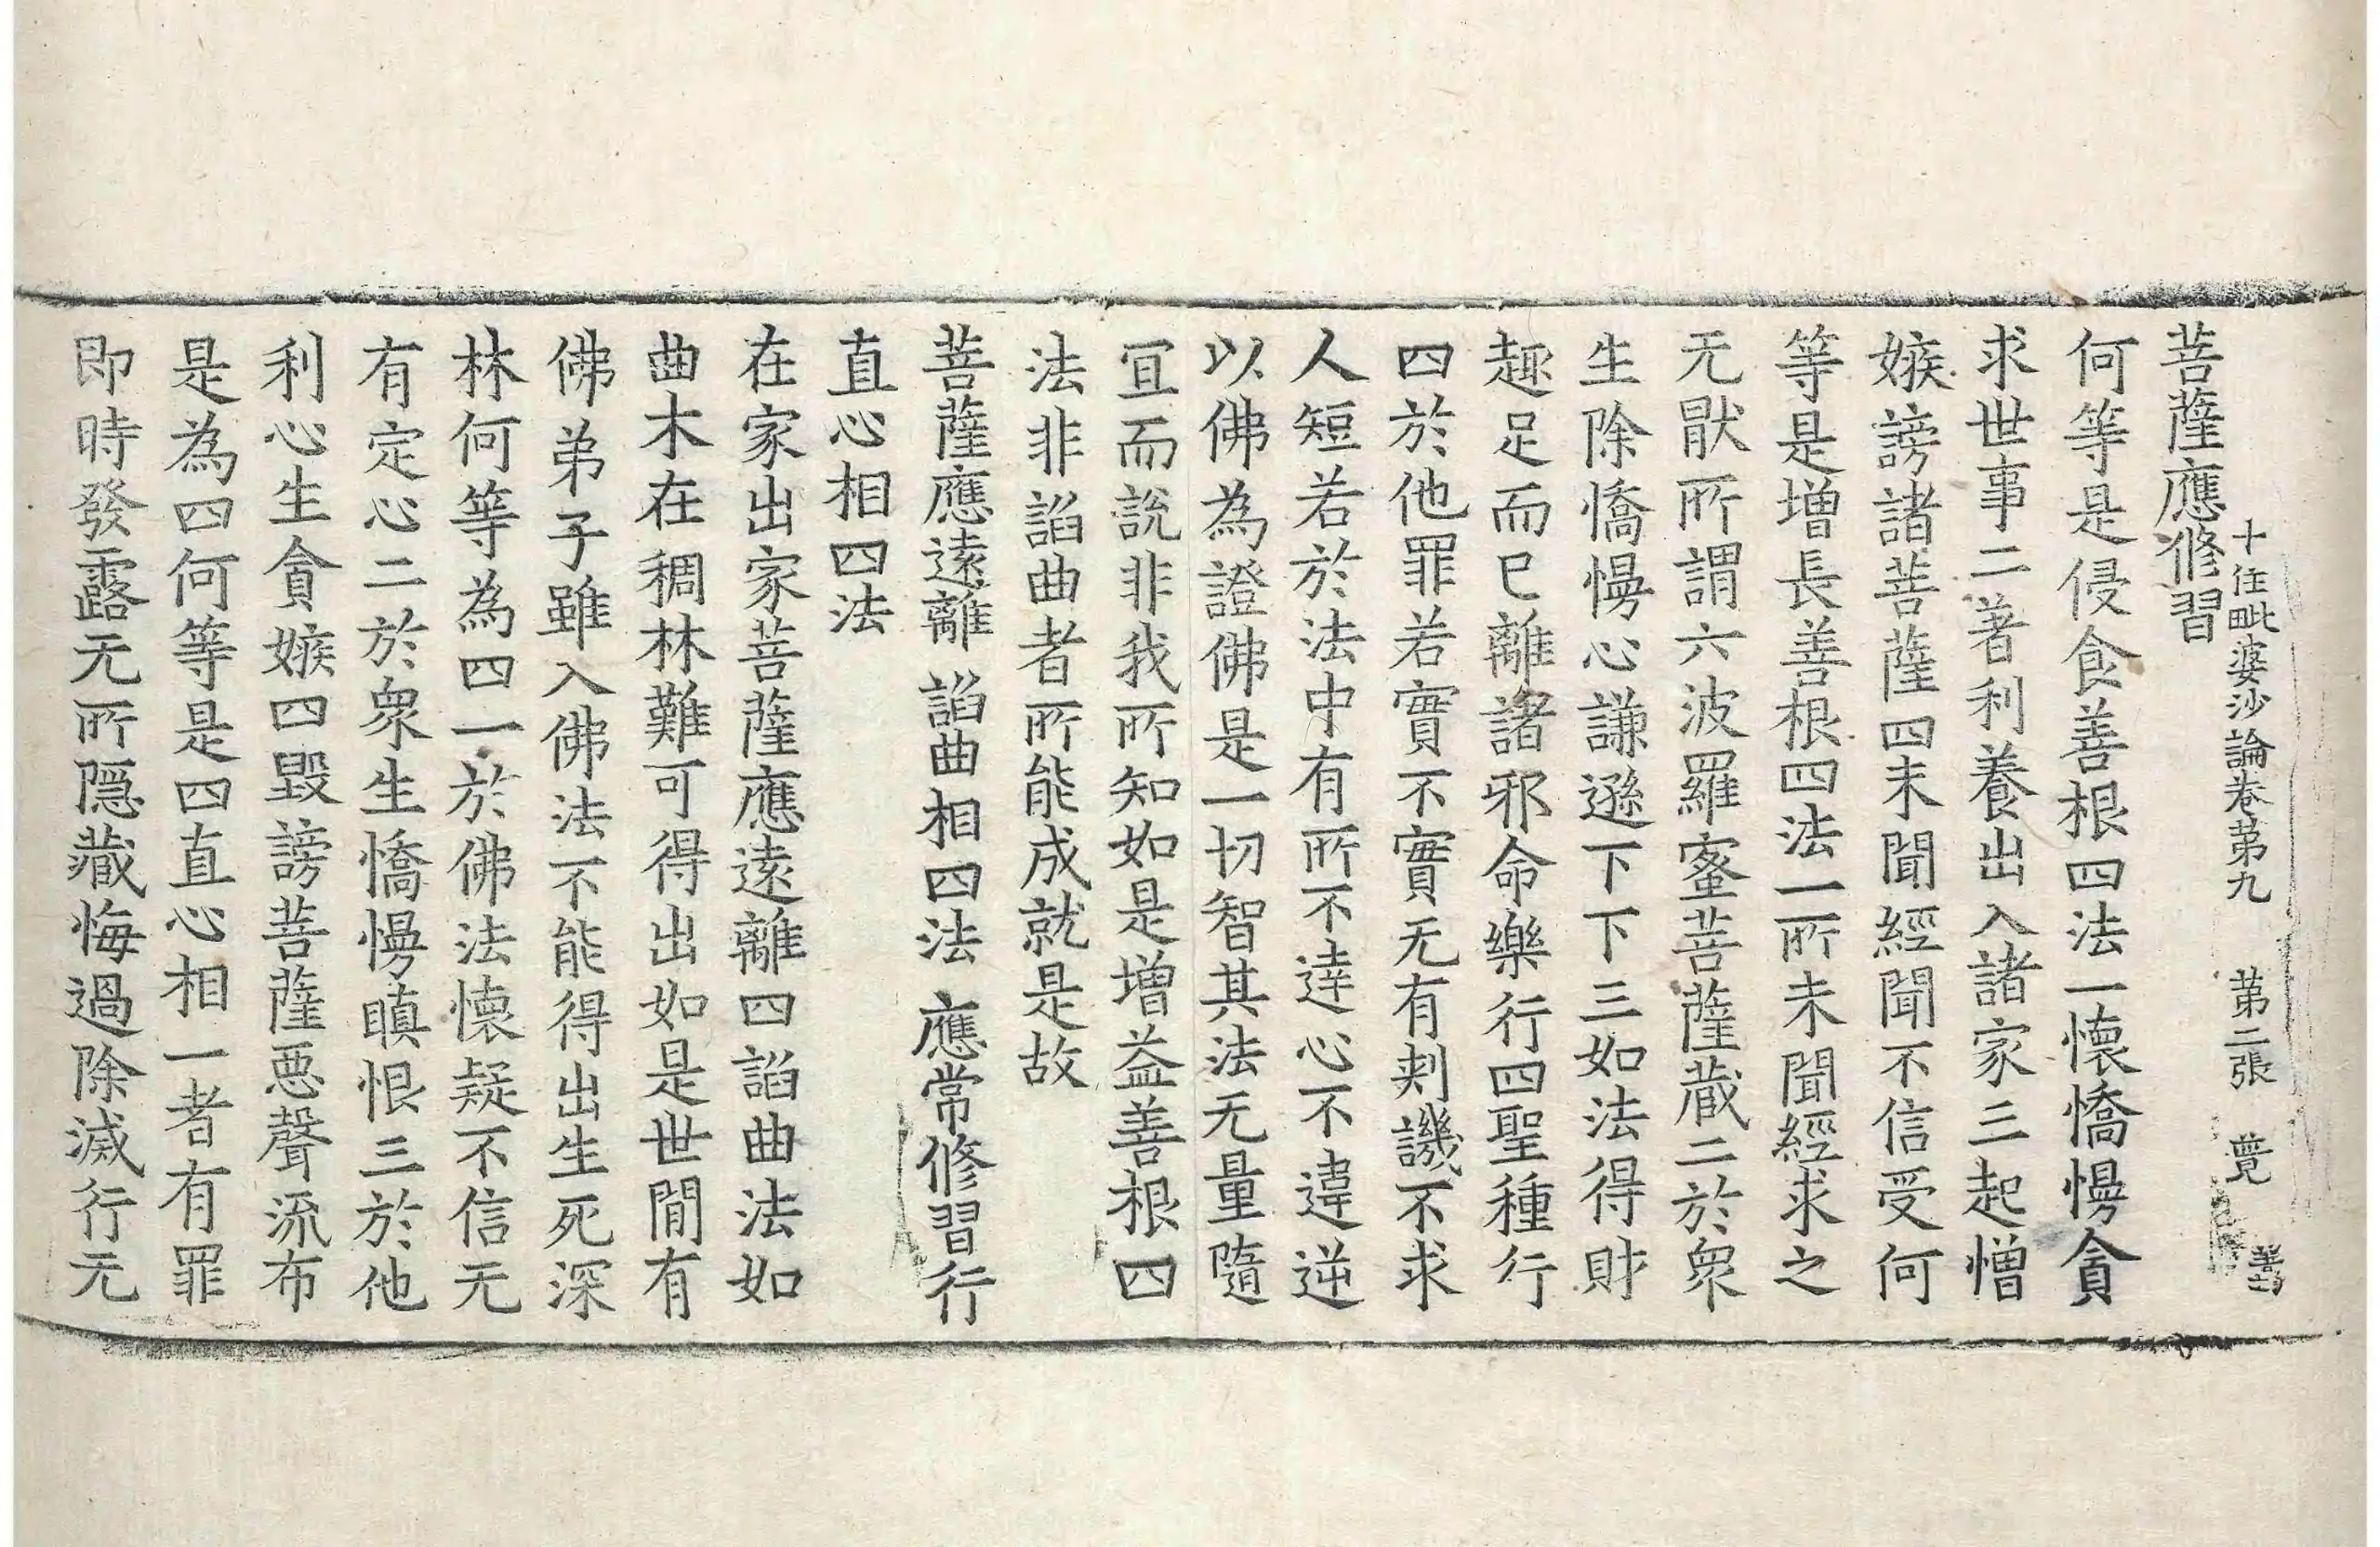 十住毗婆沙論卷苐九　苐二張　𦴩
菩薩應修習
何等是侵食善根四法一懷憍慢貪
求世事二著利養出入諸家三起憎
嫉謗諸菩薩四未聞經聞不信受何
等是增長善根四法一所未聞經求之
无猒所謂六波羅蜜菩薩蔵二於衆
生除憍慢心謙遜下下三如法得財
趣足而已離諸邪命樂行四聖種行
四於他罪若實不實无有刾譏不求
人短若於法中有所不達心不違逆
以佛為證佛是一切智其法无量隨
冝而說非我所知如是增益善根四
法非諂曲者所能成就是故
菩薩應遠離　諂曲相四法　應常修習行
直心相四法
在家出家菩薩應遠離四諂曲法如
曲木在稠林難可得出如是世間有
佛弟子雖入佛法不能得出生死深
林何等為四一於佛法懷疑不信无
有定心二於衆生憍慢瞋恨三於他
利心生貪嫉四毀謗菩薩惡聲流布
是為四何等是四直心相一者有罪
即時發露无所隱藏悔過除滅行无